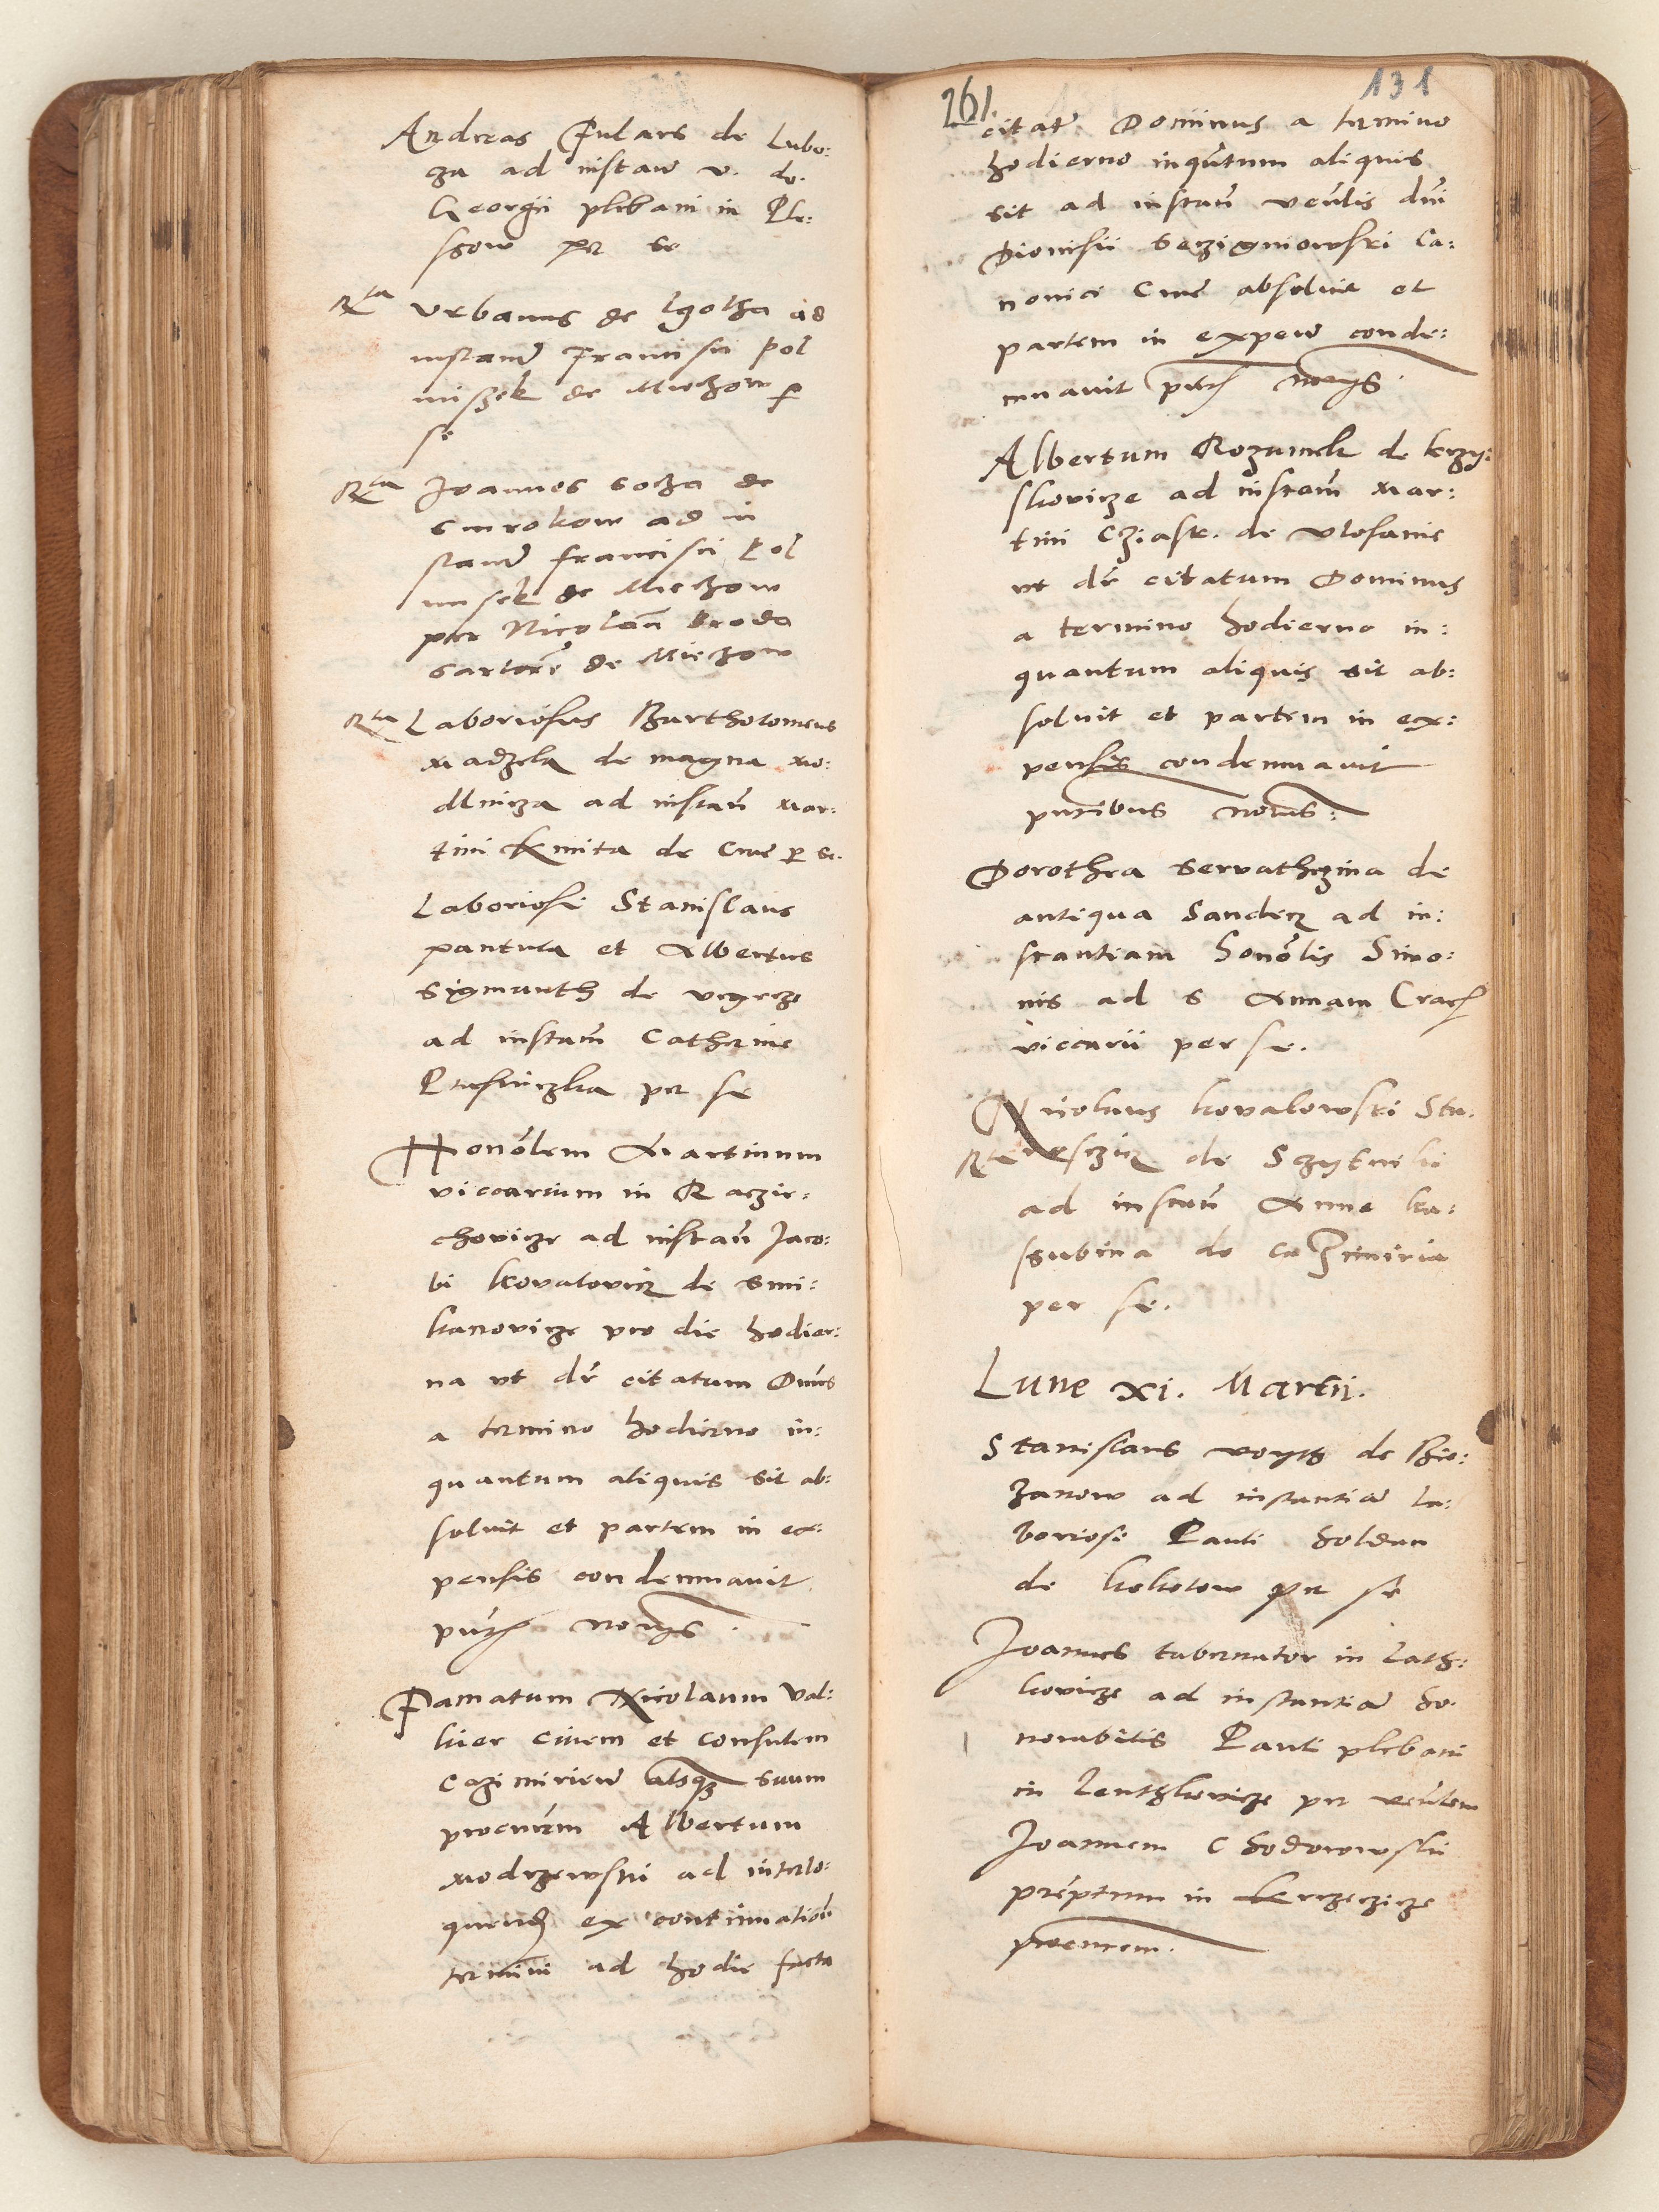 Andreas Pulars de Lubo:
cza ad instan v. do.
Georgii plebani in Ple:
ssow per se
Rta Urbanus de Lgotha ad
instan Francisci Pol
missek de Miechow p
se
Rta Joannes Socha de
Smrokow ad in
stan Francisci Pol
missek de Miechow
per Nicolaum Broda
sartorem de Miechow
Rta Laboriosus Bartholomeus
Madzela de magna Mo:
dlnicza ad instan Mar:
tini Kmita de Crac p se.
Laboriosi Stanislaus
Pantula et Albertus
Sigmunth de Vegrcze
ad instan Catherine
Ptasniczka per se
Honolem Martinum
viccarium in Raczie:
chovicze ad instan Jaco:
bi Kovalovicz de Smi:
kanovicze pro die hodier:
na ut dr citatum Dnus
a termino hodierno in:
quantum aliquis sit ab:
soluit et partem in ex:
pensis condemnavit
putib nobis.
Famatum Nicolaum Val:
kier civem et consulem
Cazimirien atque suum
procurem Albertum
Modrzewski ad interlo:
quend ex continuation
termini ad hodie facta
261. 131
citat Dominus a termino
hodierno inqutum aliquis
sit ad instan venlis dni
Dionisii Seczigniowski Ca:
nonici Crac absoluit et
partem in expen conde:
mnavit putib nobis.
Albertum Rozumek de Krzy:
skovicze ad instan Mar:
tini Cziastk. de Vlosanie
ut dr citatum Dominus
a termino hodierno in:
quantum aliquis sit ab:
soluit et partem in ex:
pensis condemnavit
putibus nobis:
Dorothea Servathczina de
antiqua Sandecz ad in:
stantiam honolis Simo:
nis ad S Annam Crac
viccarii per se.
Nicolaus Kovalowski Sta.
Rta de Sczytniki
ad instan Anne Ka:
ssubina de Cazimiria
per se.
Lune xi. Martii.
Stanislaus Voyth de Bie:
zanow ad instantia la:
boriosi Pauli Holdan
de Kokotow per se
Joannes tabernator in Lath:
kovicze ad instantia ho.
norabilis Pauli plebani
in Lenthkovicze per venlem
Joannem Chodorowski
preptum in Krzczczicze
procurem.